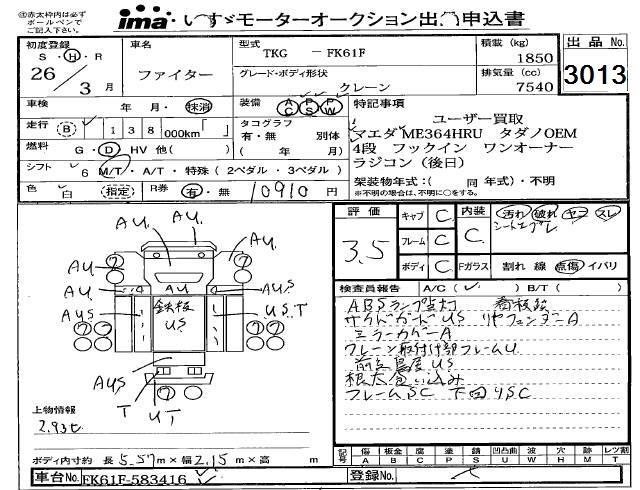 ㊟赤太枠内は必ず
ボールペンで
ご記入下さい。
ima いすゞモーターオークション出品申込書
初度登録
S・H・R
26年 3月
車名
ファイター
型式
TKG － FK61F
グレード・ボディ形状
クレーン
積載 (kg)
1850
排気量 (cc)
7540
出品No.
3013
車検 年 月・抹消
装備 AC PS PW
特記事項
ユーザー買取
マエダ ME364HRU タダノOEM
4段 フックイン ワンオーナー
ラジコン（後日）
架装物年式：( 同 年式)・不明
※不明の場合は、不明に○をする。
走行 (B) 138 000km
タコグラフ
有・無 別体
( 年 月)
燃料 G・D HV 他( )
シフト 6 M/T・A/T・特殊 (2ペダル・3ペダル)
色 白 (指定) R券 有・無 10910 円
評価
3.5
キャブ C
フレーム C
ボディ C
内装
C
Fガラス
汚れ 破れ ヤコ スレ
割れ 線 点傷 イバリ
検査員報告 A/C( ) B/T( )
ABSランプ点灯 看板跡
サイドガード US リヤフェンダーA
ミラーカバーA
クレーン取付け部フレームU
前立鳥居 US
根太食い込み
フレームSC 下回りSC
AU AU
AU AU
AU AU AUS
AUS 鉄板 US US.T
AUS
T UT
上物情報
2.93t
ボディ内寸約 長 5.57m×幅 2.15m×高 m
車台No. FK61F-583416
記号
傷 A
板金 B
腐 C
塗 P
錆 S
凹 U
凸凹曲 W
波
穴 H
跡 M
レツ割 T
登録No.